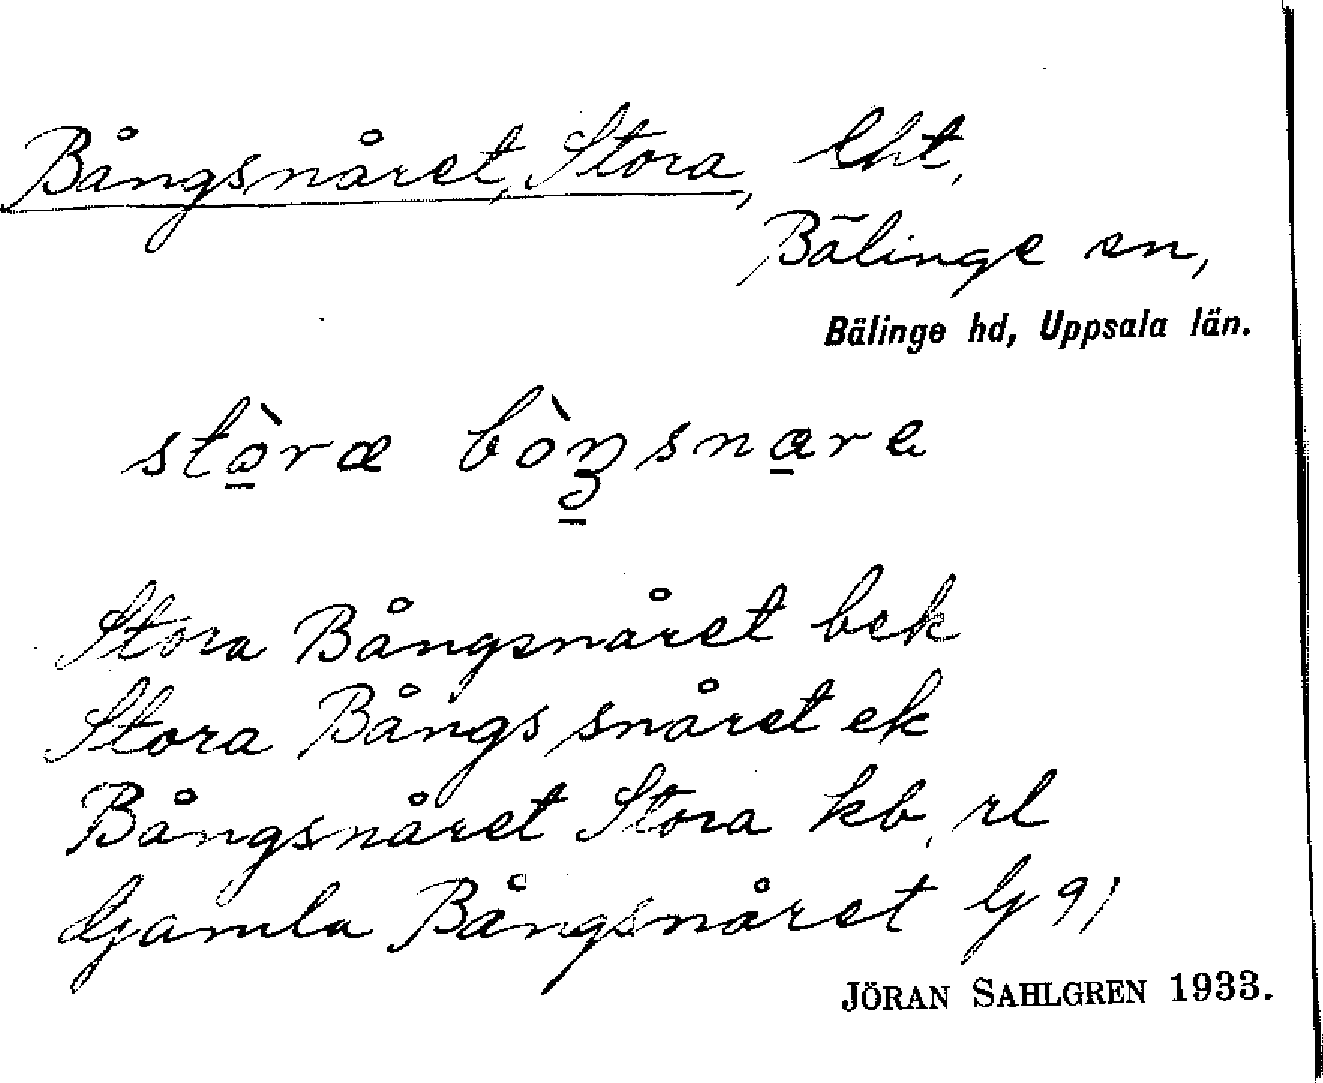 Bångsnåret, Stora, lht,
Bälinge sn,
Bälinge hd, Uppsala län.
stò̠ræ bòŋ̠sna̠re
Stora Bångsnåret bek
Stora Bångs snåret ek
Bångsnåret Stora kb, rl
Gamla Bångsnåret G 91
JÖRAN SAHLGREN 1933.